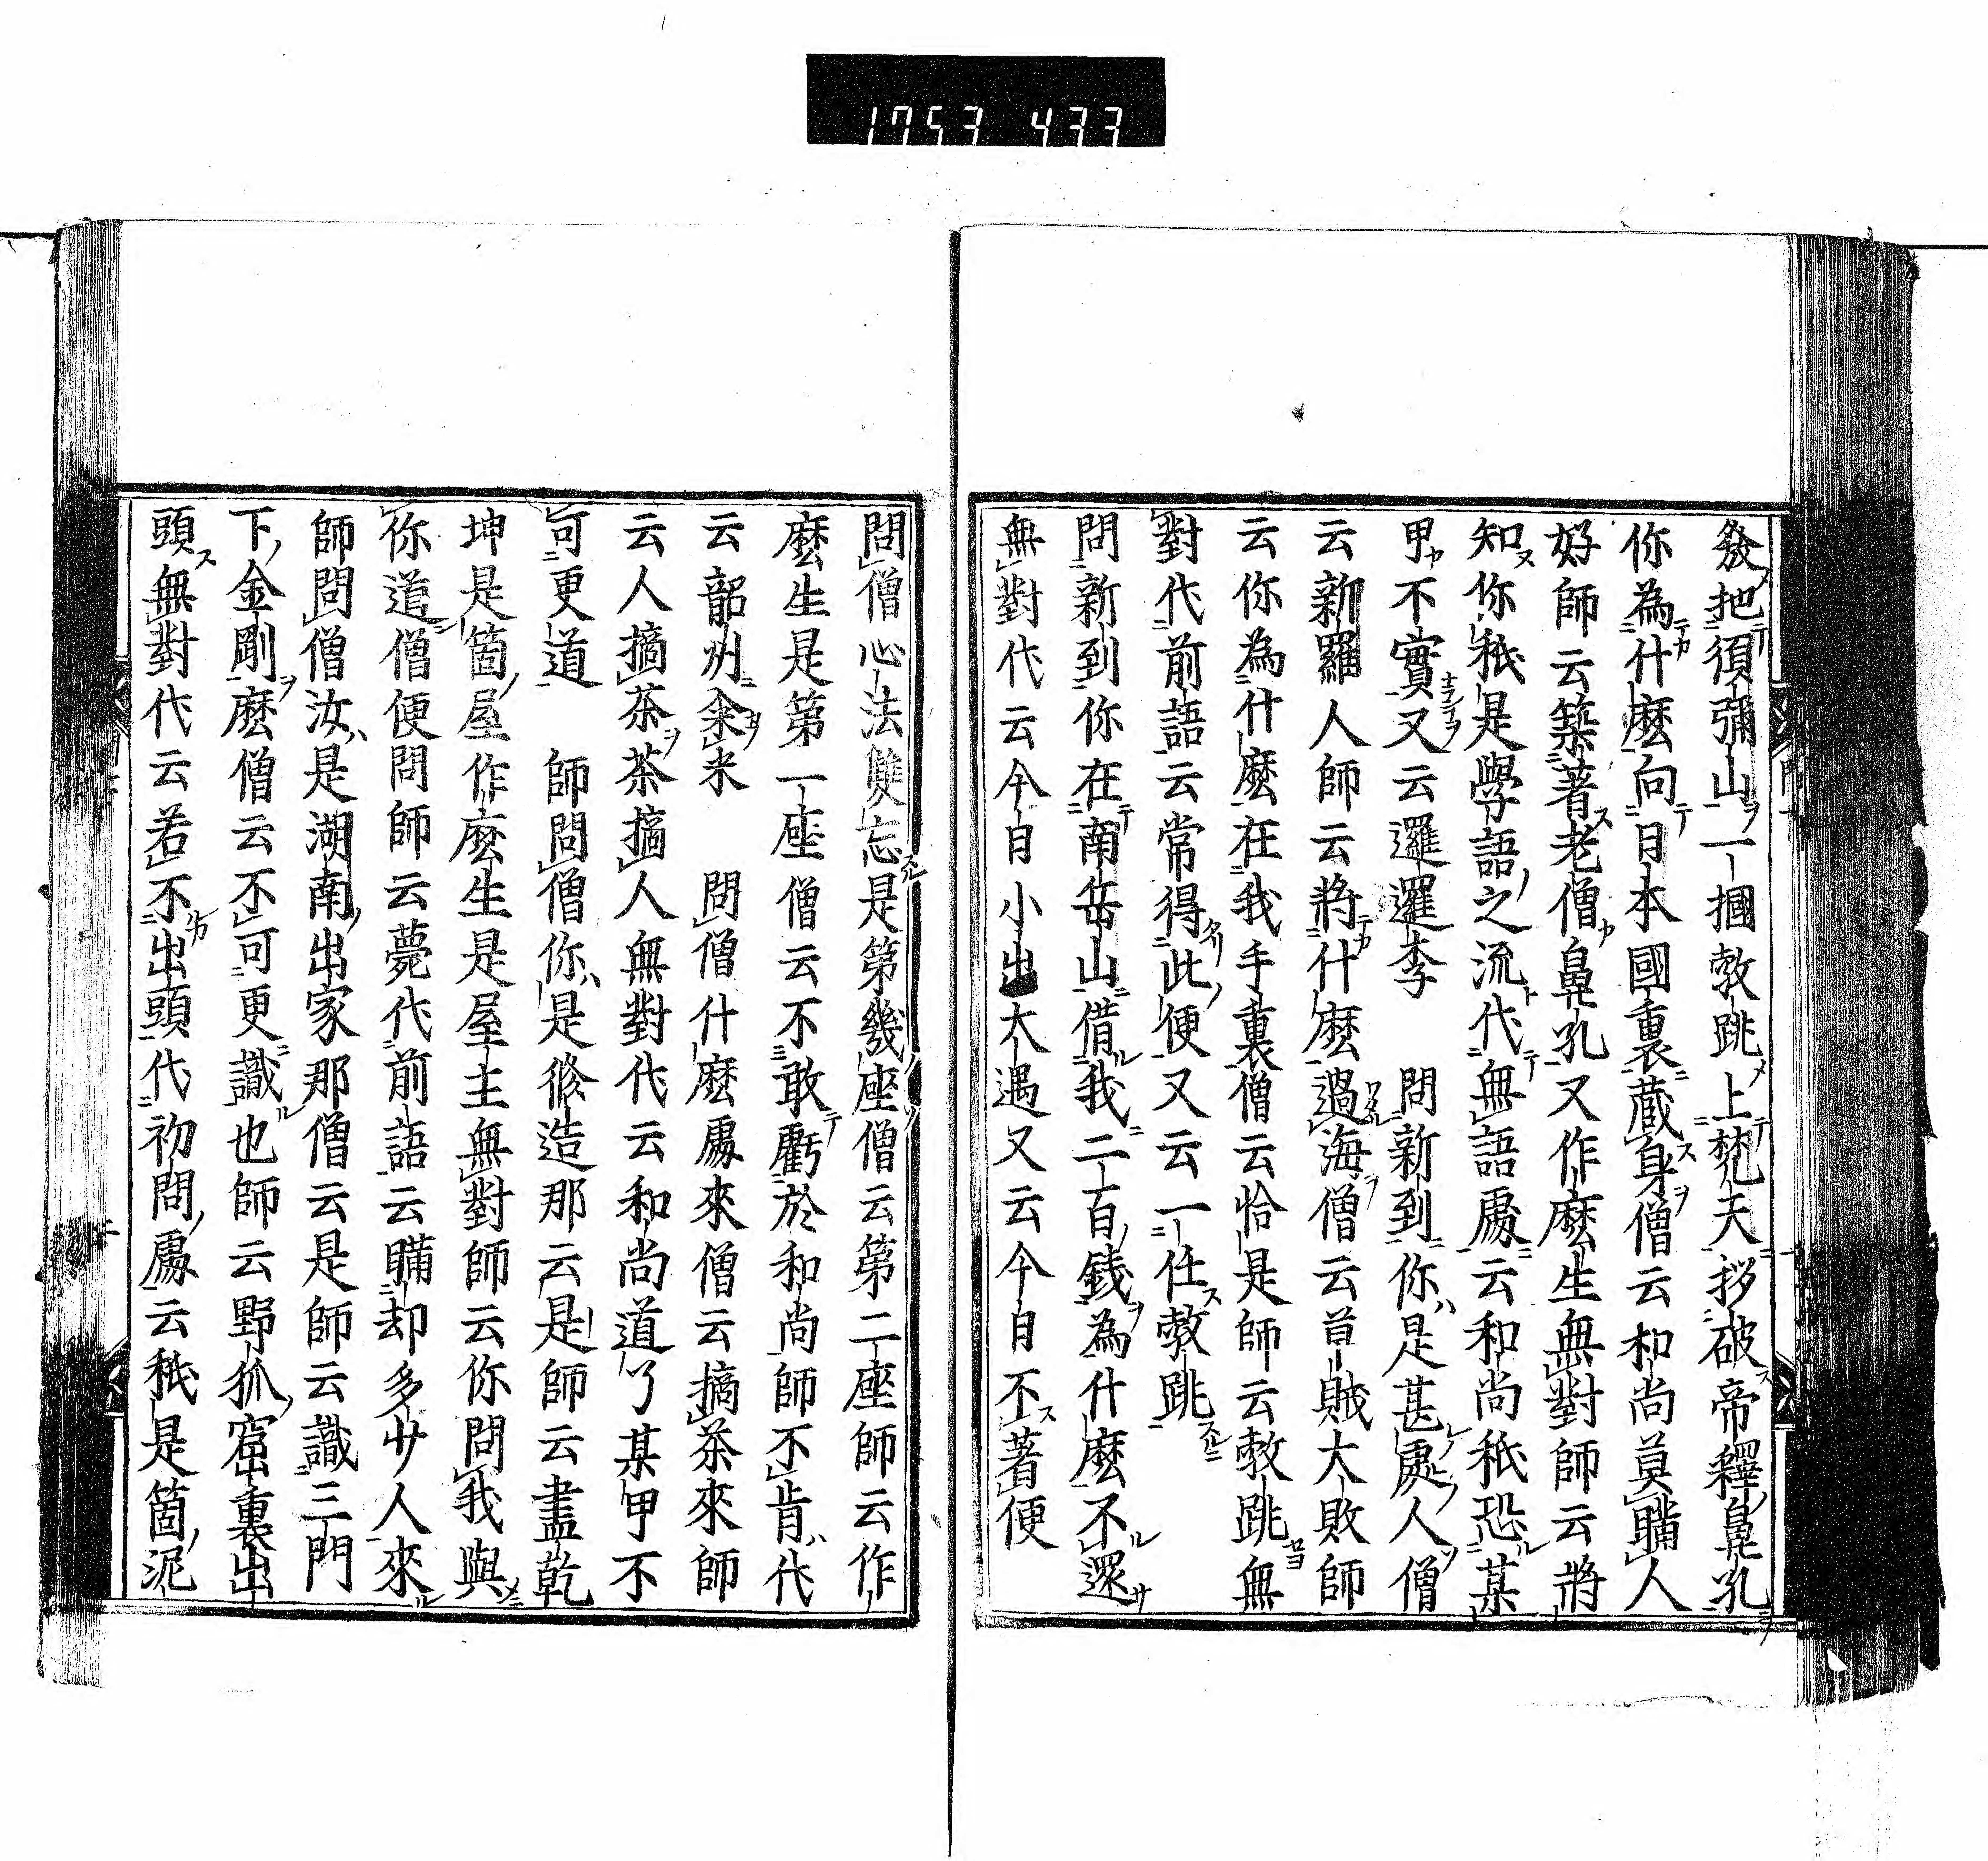 1753 433
發把須彌山一摑㪍跳上梵天拶破帝釋鼻孔
你為什麼向日本國裏蔵身僧云和尚莫瞞人
好師云築著老僧鼻孔又作麼生無對師云將
知你秖是學語之流代無語處云和尚秖恐某
甲不實又云邏邏李　問新到你是甚處人僧
云新羅人師云將什麼過海僧云草賊大敗師
云你為什麼在我手裏僧云恰是師云㪍跳無
對代前語云常得此便又云一任㪍跳
問新到你在南岳山借我二百錢為什麼不還
無對代云今日小出大遇又云今日不著便
問僧心法雙忘是第幾座僧云第二座師云作
麼生是第一座僧云不敢虧於和尚師不肯代
云韶州籴米　問僧什麼處來僧云摘茶來師
云人摘茶茶摘人無對代云和尚道了某甲不
可更道　師問僧你是修造那云是師云盡乾
坤是箇屋作麼生是屋主無對師云你問我與
你道僧便問師云薨代前語云瞞却多少人來
師問僧汝是湖南出家那僧云是師云識三門
下金剛麼僧云不可更識也師云野狐窟裏出
頭無對代云若不出頭代初問處云秖是箇泥